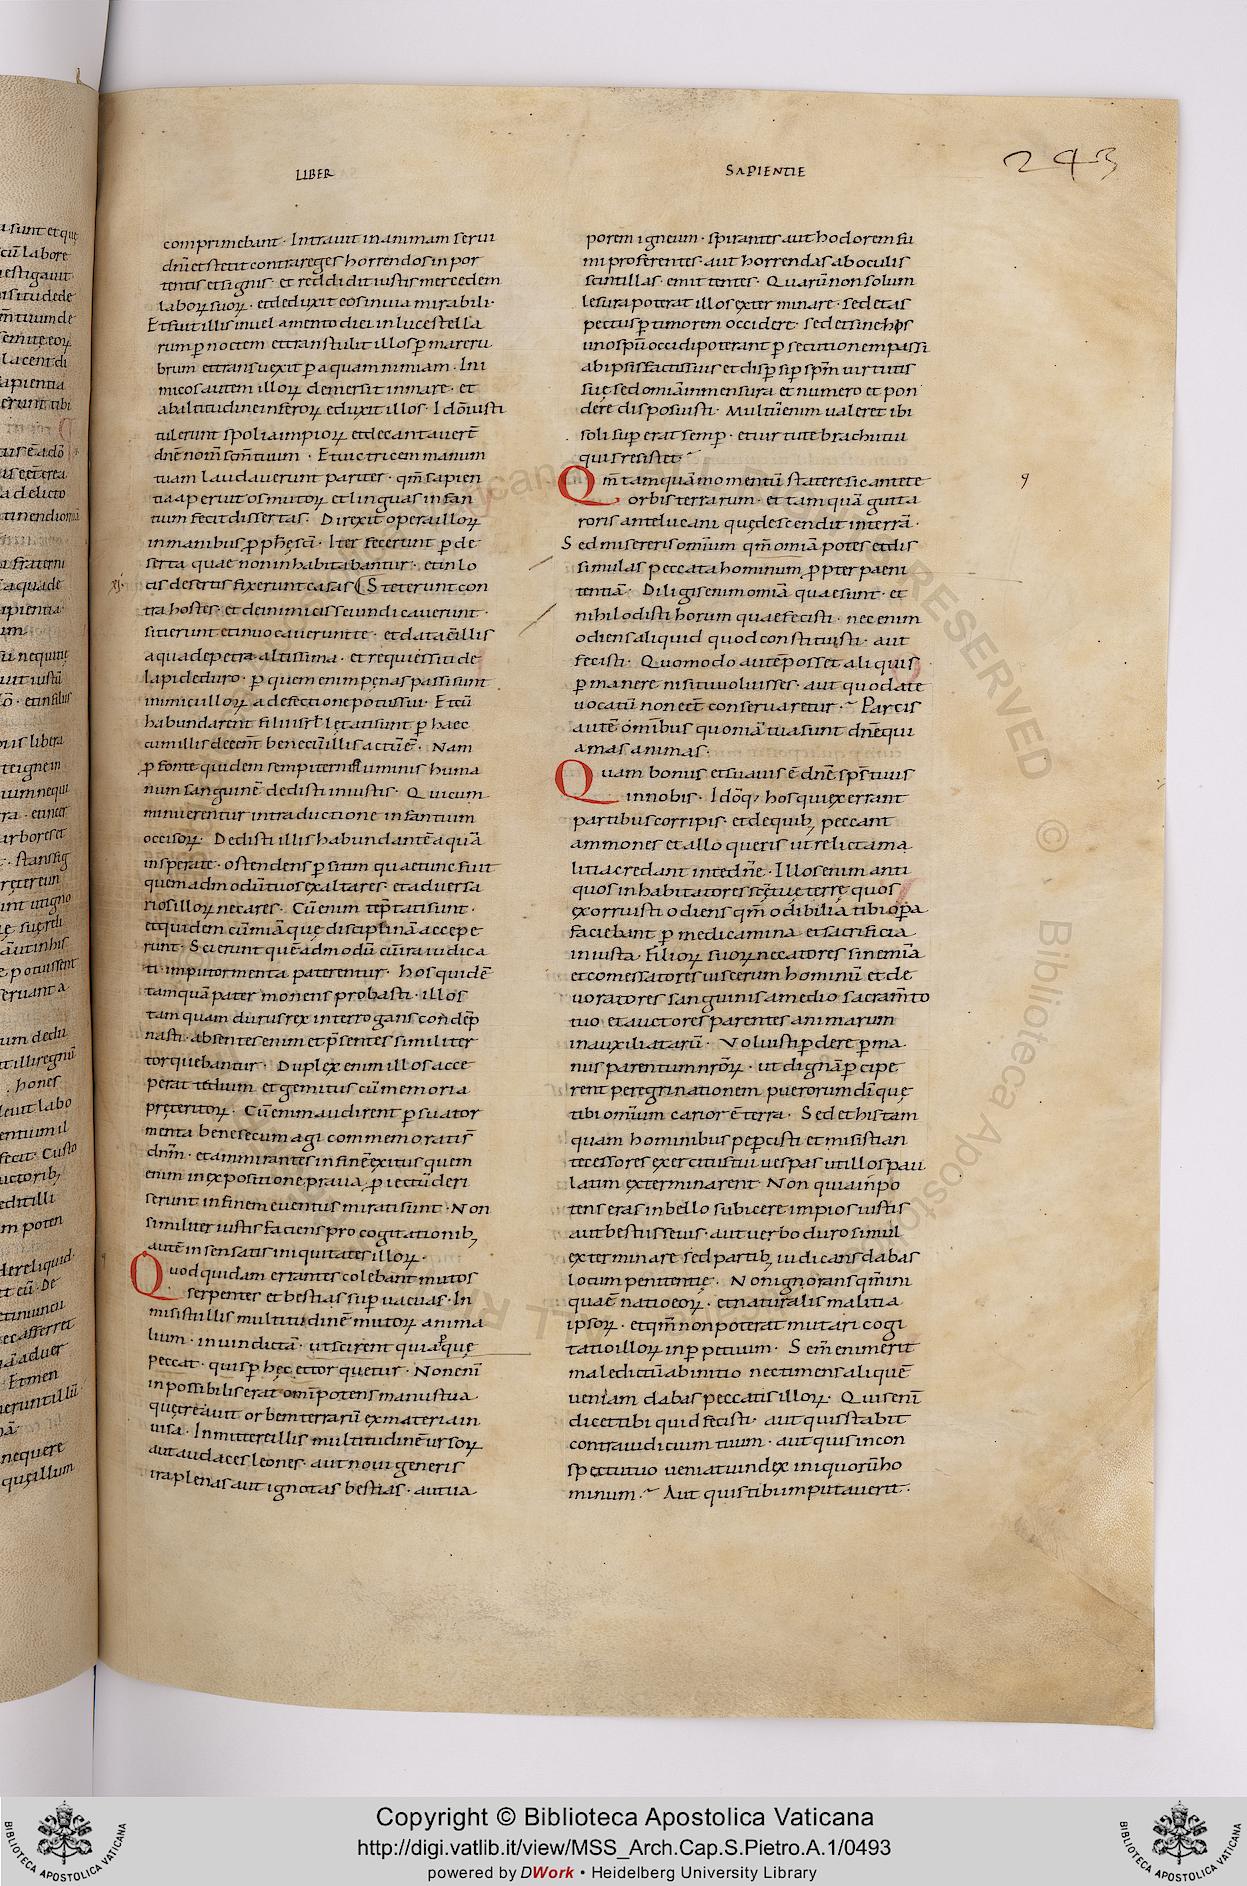 LIBER
SAPIENTIE
243
comprimebant · Intravit in animam servi
dñi et stetit contra reges horrendos in por
tentis et signis · et reddidit iustis mercedem
laborꝝ suorꝝ · et deduxit eos in via mirabili ·
Et fuit illis in velamento diei in luce stella
rum ꝑ noctem et transtulit illos ꝑ mare ru
brum et transvexit ꝑ aquam nimiam · Ini
micos autem illorꝝ demersit in mare · et
ab altitudine inferorꝝ eduxit illos · Ideo iusti
tulerunt spolia impiorꝝ et decantaverт̄
dñe nom̄ sc̄m tuum · Et victricem manum
tuam laudaverunt pariter · qm̄ sapien
tia aperuit os mutorꝝ et linguas infan
tium fecit dissertas · Direxit opera illorꝝ
in manibus ꝓphę sc̄i · Iter fecerunt ꝑ de
serta quae non inhabitabantur · et in lo
xi · cis desertis fixerunt casas Steterunt con
tra hostes · et de inimicis se vindicaverunt ·
sitierunt et invocaverunt te · et data ē illis
aqua de petra altissima · et requies siti de
lapide duro · ꝑ quem enim pęnas passi sunt
inimici illorꝝ a defectione potus sui · Et cū
habundarent filii isrl̄ lętati sunt ꝑ haec
cum illis deeent bene cū illis actū ē · Nam
ꝑ fonte quidem sempiterni fluminis huma
num sanguinē dedisti iniustis · Qui cum
minuerentur in traductione infantium
occisorꝝ · Dedisti illis habundantē aquā
insperate · ostendens ꝑ sitim quae tunc fuit
quemadmodū tuos exaltares · et adversa
rios illorꝝ necares · Cū enim teptati sunt ·
et quidem cū mīa quę disciplinā accepe
runt · Scierunt quēadmodū cū ira iudica
ti impii tormenta paterentur · hos quidē
tamquā pater monens probasti · illos
tamquam durus rex interrogans condēp
nasti · absentes enim et p̄sentes similiter
torquebantur · Duplex enim illos acce
perat tedium et gemitus cū memoria
pręteritorꝝ · Cū enim audirent ꝑ sua tor
menta bene secum agi commemorati sт̄
dnm̄ · et ammirantes in finē exitus quem
enim in expositione prava ꝓiectū deri
serunt in finem eventus mirati sunt · Non
similiter iustis faciens pro cogitationibꝫ
autē insensatis iniquitates illorꝝ ·
Quod quidam errantes colebant mutos
serpentes et bestias supvacuas · In
misisti illis multitudinē mutorꝝ anima
lium · in vindictā · ut scirent quia ꝑ quę
peccat · quis ꝑ hęc et torquetur · Non enī
inpossibilis erat omīpotens manus tua
quę creavit orbem terrarū ex materia in
visa · Inmittere illis multitudinē ursorꝝ
aut audaces leones · aut novi generis
ira plenas aut ignotas bestias · aut va
porem igneum · spirantes aut hodorem fu
mi proferentes · aut horrendas ab oculis
scintillas · emittentes · Quarū non solum
lesura poterat illos exterminare · sed et as
pectus ꝑ timorem occidere · sed et sine his
uno spū occidi poterant ꝑsecutionem passi
ab ipsis factis suis et disꝑsi ꝑ spm̄ virtutis
suę sed omia in mensura et numero et pon
dere disposuisti · Multū enim valere tibi
soli supererat semꝑ · et virtute brachii tui
quis resistet ·
Qm̄ tamquā momentū staterę sic ante te
orbis terrarum · et tamquā gutta
roris antelucani quę descendit in terrā ·
9
Sed misereris omīum qm̄ omia potes et dis
simulas peccata hominum ꝓpter paeni
tentiā · Diligis enim omia quae sunt · et
nihil odisti horum quae fecisti · nec enim
odiens aliquid quod constituisti · aut
fecisti · Quomodo autē posset aliquis
ꝑmanere nisi tu voluisses · aut quod a te
vocatū non eet̄ conservaretur · Parcis
autē omībus quoniā tua sunt dñe qui
amas animas ·
Quam bonus et suavis ē dñe sps̄ tuus
in nobis · Ideoqꝫ hos qui exerrant
partibus corripis · et de quibꝫ peccant
ammones et alloqueris ut relicta ma
litia credant in te dn̄e · Illos enim anti
quos inhabitatores sc̄ę tuę terrę quos
exorruisti odiens qm̄ odibilia tibi opa
faciebant ꝑ medicamina et sacrificia
iniusta · Filiorꝝ suorꝝ necatores sine mīa
et comessatores viscerum hominū et de
voratores sanguinis a medio sacram̄to
tuo et auctores parentes animarum
inauxiliatarū · Voluisti ꝑdere ꝑ ma
nus parentum nrōrꝝ · ut dignā ꝑcipe
rent peregrinationem puerorum dī quę
tibi omīum carior ē terra · Sed et his tam
quam hominibus peꝑcisti et misisti an
tecessores exercitus tui vespas ut illos pau
latim exterminarent Non quia inpo
tens eras in bello subicere impios iustis
aut bestiis sevis · aut verbo duro simul
exterminare sed partibꝫ iudicans dabas
locum penitentię · Non ignorans qm̄ ini
quaē natio eorꝝ · et naturalis malitia
ipsorꝝ · et qm̄ non poterat mutari cogi
tatio illorꝝ in ꝑpetuum · Sem̄ enim erit
maledictū ab initio nec timens aliquē
veniam dabas peccatis illorꝝ · Quis enī
dicet tibi quid fecisti · aut quis stabit
contra iudicium tuum · aut quis in con
spectu tuo veniat vindex iniquorū ho
minum · Aut quis tibi imputaverit ·
Copyright © Biblioteca Apostolica Vaticana
http://digi.vatlib.it/view/MSS_Arch.Cap.S.Pietro.A.1/0493
powered by DWork • Heidelberg University Library